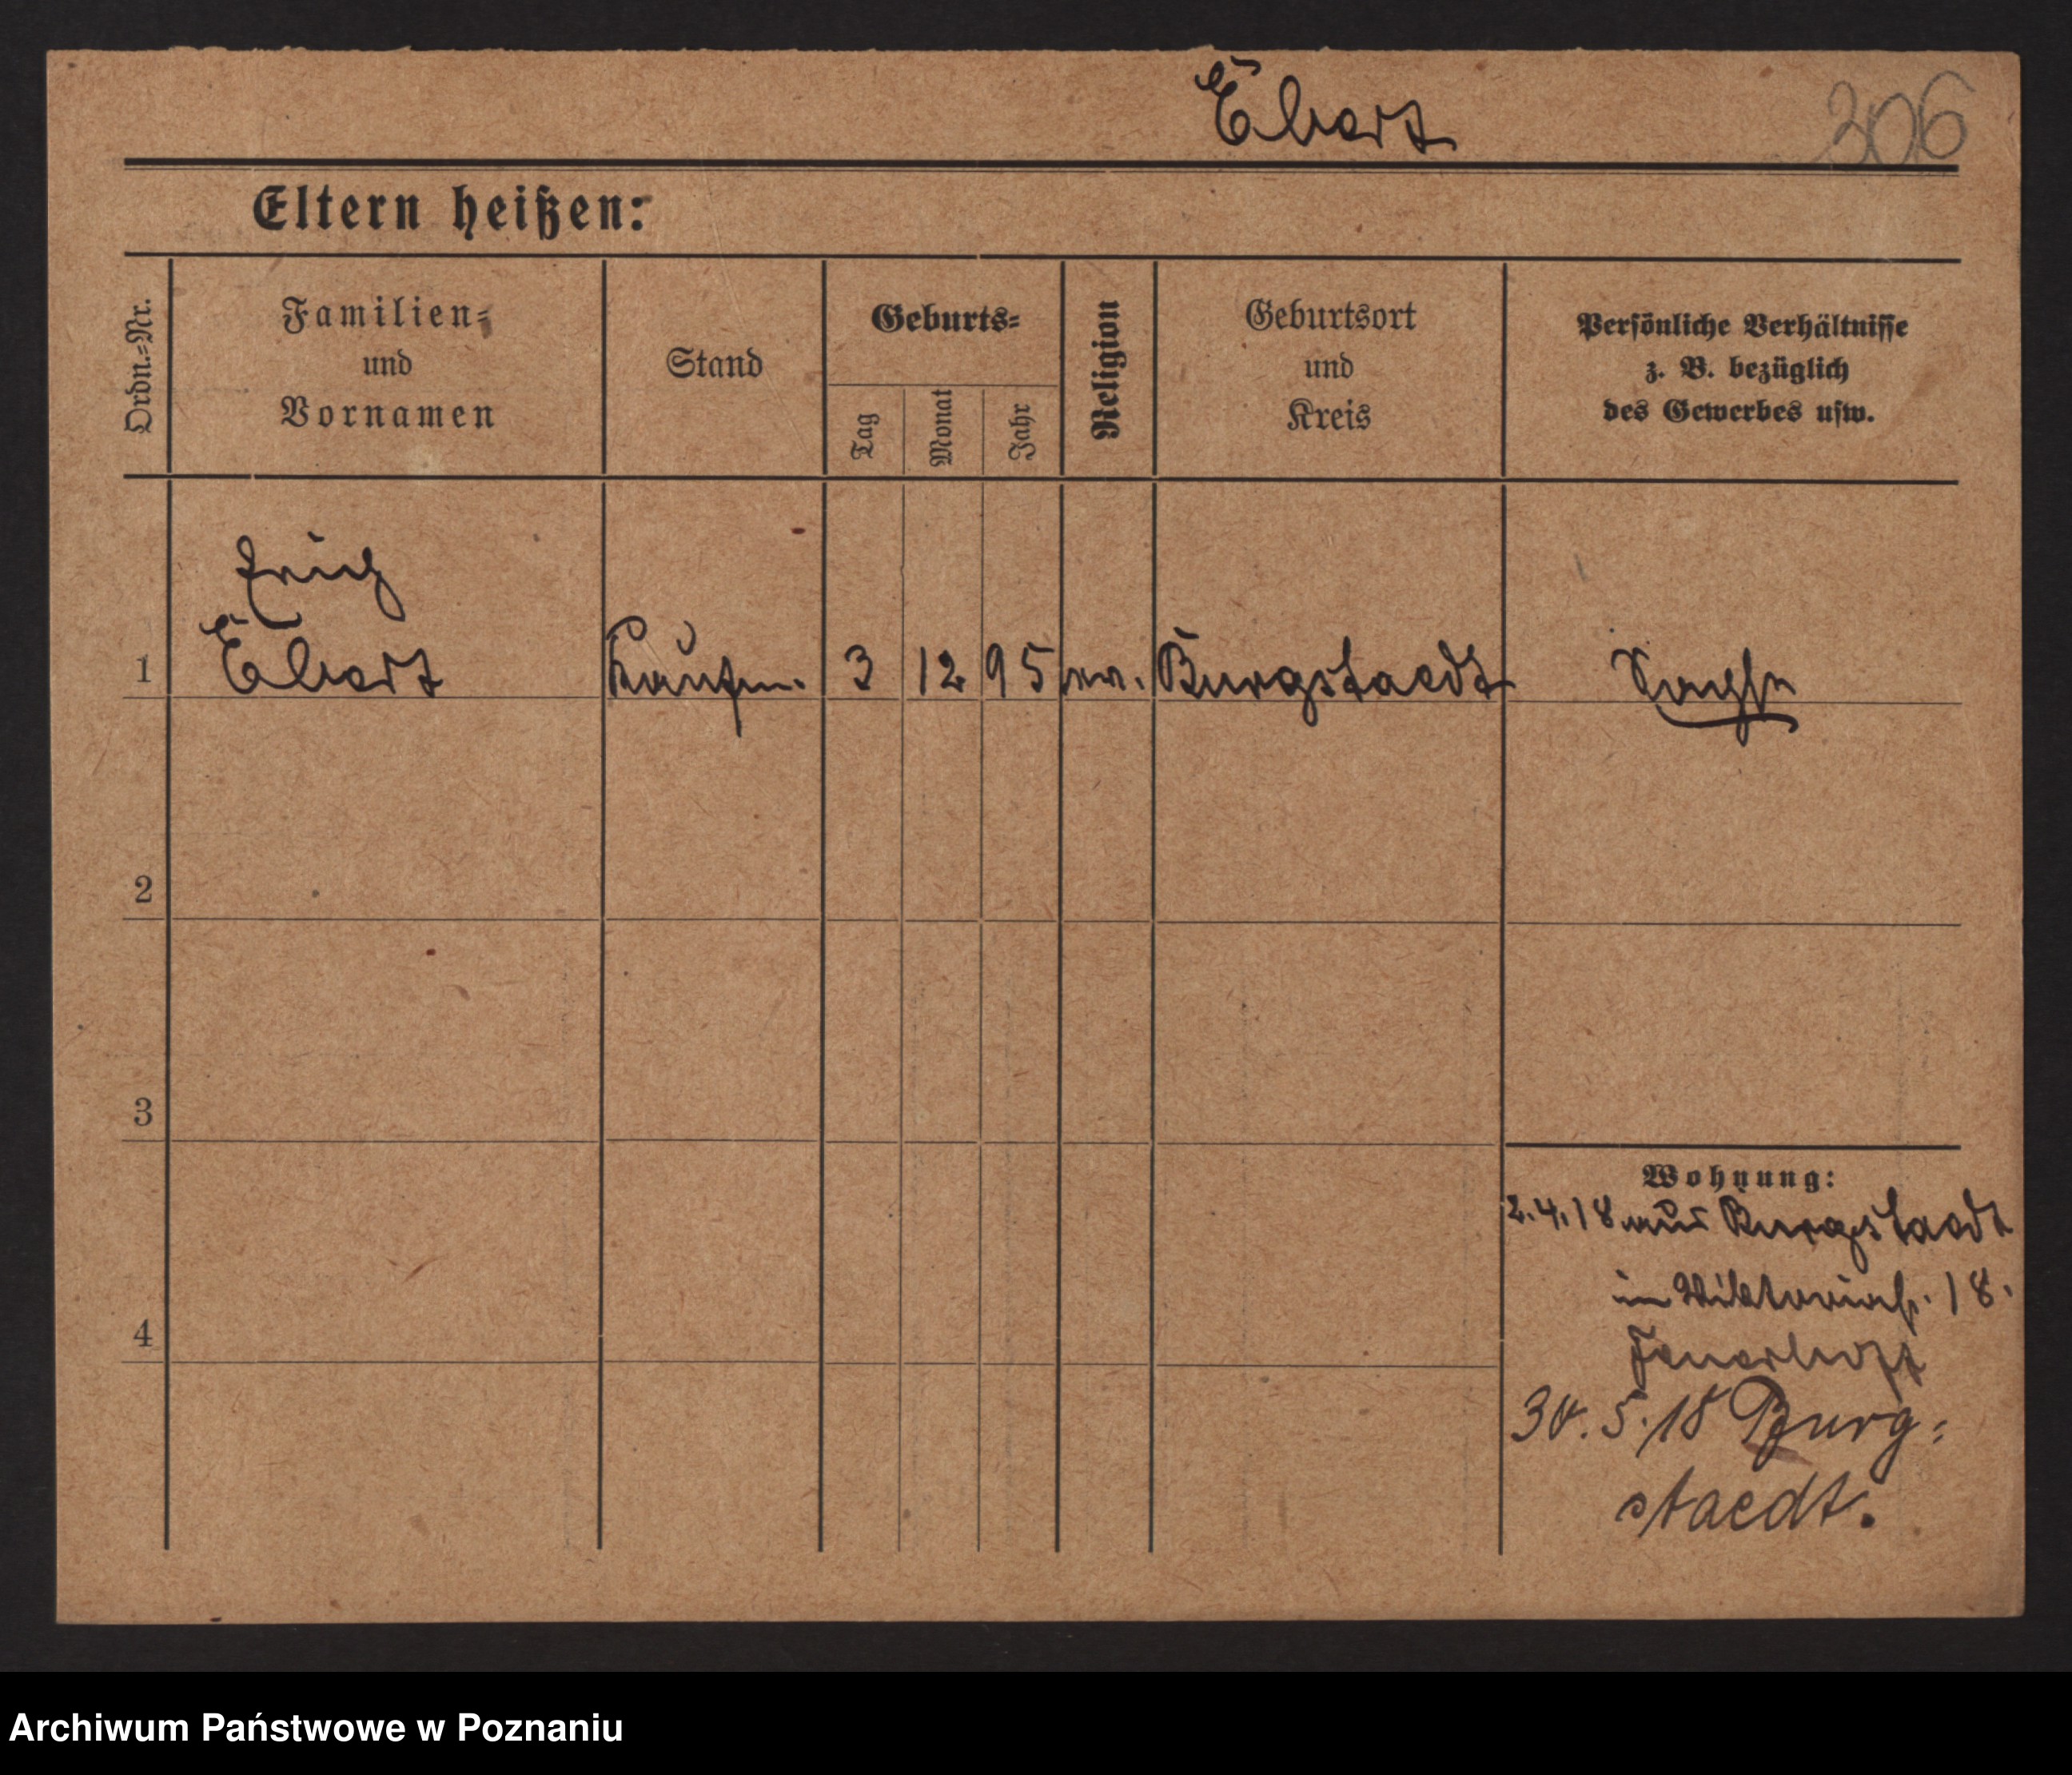 Ebert
306
Eltern heißen:
Ordn.=Nr.
Familien=
und
Vornamen
Stand
Geburts=
Tag
Monat
Jahr
Religion
Geburtsort
und
Kreis
Persönliche Verhältnisse
z. B. bezüglich
des Gewerbes usw.
Erich
1 Ebert Kaufm. 3 12 95 ev. Burgstaedt Sachsen
2
3
Wohnung:
2.4.18 aus Burgstaedt
im Viktoriastr. 18.
4
30. 5. 18 Burg=
staedt.
Archiwum Państwowe w Poznaniu